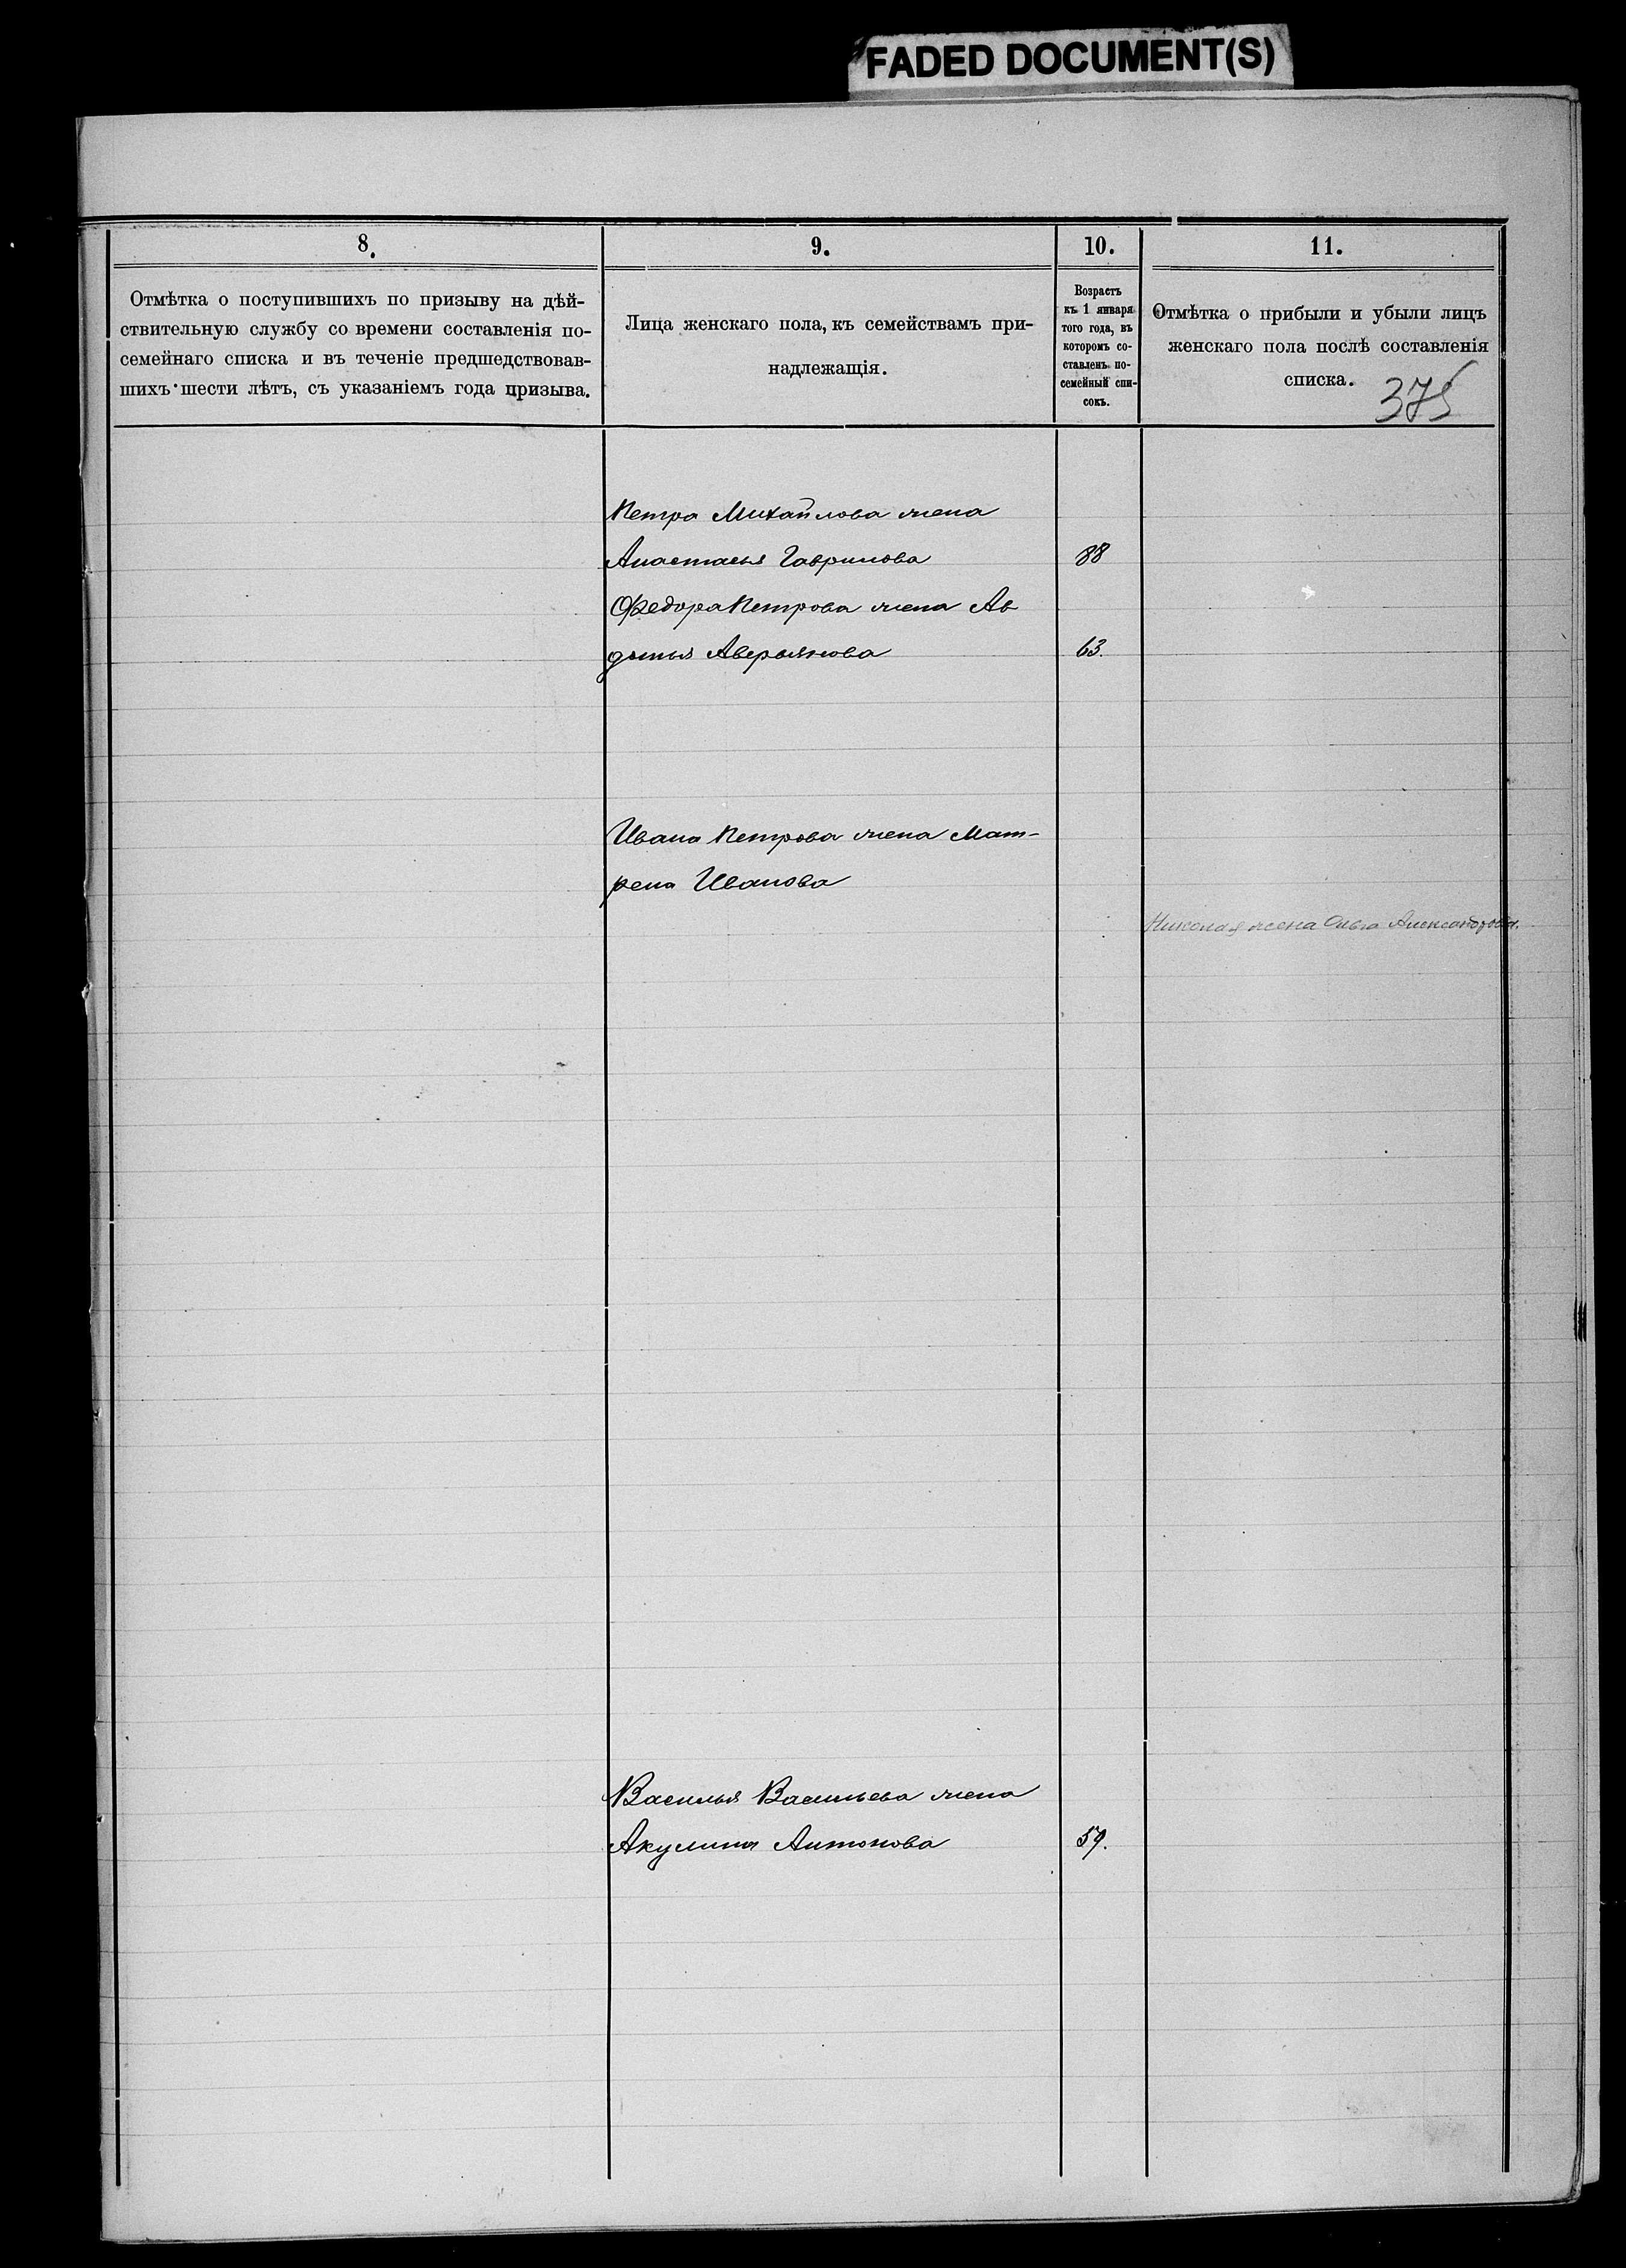 FADED DOCUMENT(S)
8.
9.
10.
11.
Отмѣтка о поступившихъ по призыву на дѣй-
ствительную службу со времени составленія по-
семейнаго списка и въ теченіе предшедствовав-
шихъ шести лѣтъ, съ указаніемъ года призыва.
Лица женскаго пола, къ семействамъ при-
надлежащія.
Возрастъ
къ 1 января
того года, въ
которомъ со-
ставленъ по-
семейный спи-
сокъ.
Отмѣтка о прибыли и убыли лицъ
женскаго пола послѣ составленія
списка.
375
Петра Михайлова жена
Анастасья Гаврилова 88
Федора Петрова жена Ав
дотья Аверьянова 63.
Ивана Петрова жена Мат-
рена Иванова
Николая жена Ольга Александрова.
Василья Васильева жена
Акулина Антонова 59.